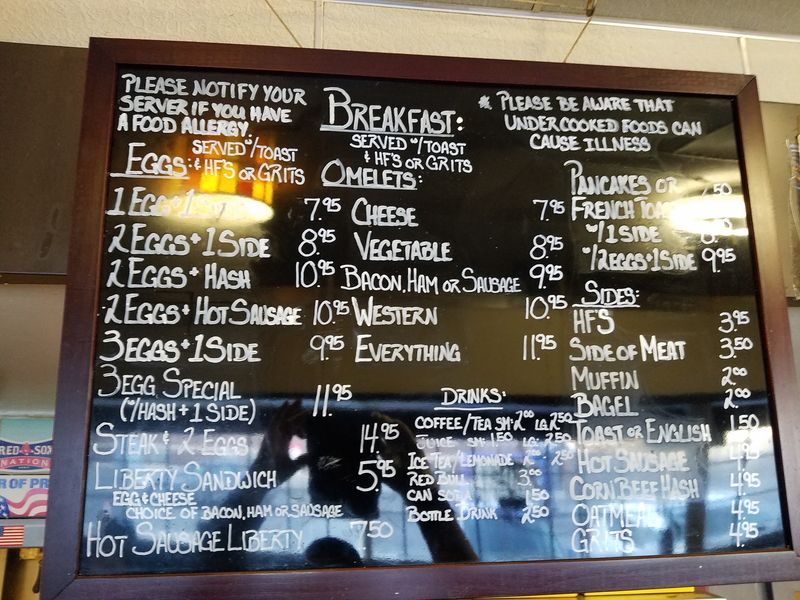 PLEASE NOTIFY YOUR
SERVER IF YOU HAVE
A FOOD ALLERGY.
SERVED W/TOAST
EGGS: & HF'S OR GRITS
1 EGG + 1 SIDE 7.95
2 EGGS + 1 SIDE 8.95
2 EGGS + HASH 10.95
2 EGGS + HOT SAUSAGE 10.95
3 EGGS + 1 SIDE 9.95
3 EGG SPECIAL
(W/HASH + 1 SIDE) 11.95
STEAK & 2 EGGS 14.95
LIBERTY SANDWICH 5.95
EGG & CHEESE
CHOICE OF BACON, HAM OR SAUSAGE
HOT SAUSAGE LIBERTY 7.50
BREAKFAST:
SERVED W/TOAST
& HF'S OR GRITS
OMELETS:
CHEESE 7.95
VEGETABLE 8.95
BACON, HAM OR SAUSAGE 9.95
WESTERN 10.95
EVERYTHING 11.95
DRINKS:
COFFEE/TEA SM: 2.00 LG: 2.50
JUICE SM: 1.50 LG: 2.50
ICE TEA/LEMONADE 2.00 2.50
RED BULL 3.00
CAN SODA 1.50
BOTTLE DRINK 2.50
* PLEASE BE AWARE THAT
UNDERCOOKED FOODS CAN
CAUSE ILLNESS
PANCAKES OR
FRENCH TOAST
W/1 SIDE
W/2 EGGS + 1 SIDE 9.95
SIDES:
HF'S 3.95
SIDE OF MEAT 3.50
MUFFIN 2.00
BAGEL 2.00
TOAST OR ENGLISH 1.50
HOT SAUSAGE 4.95
CORN BEEF HASH 4.95
OATMEAL 4.95
GRITS 4.95
RED SOX
NATION